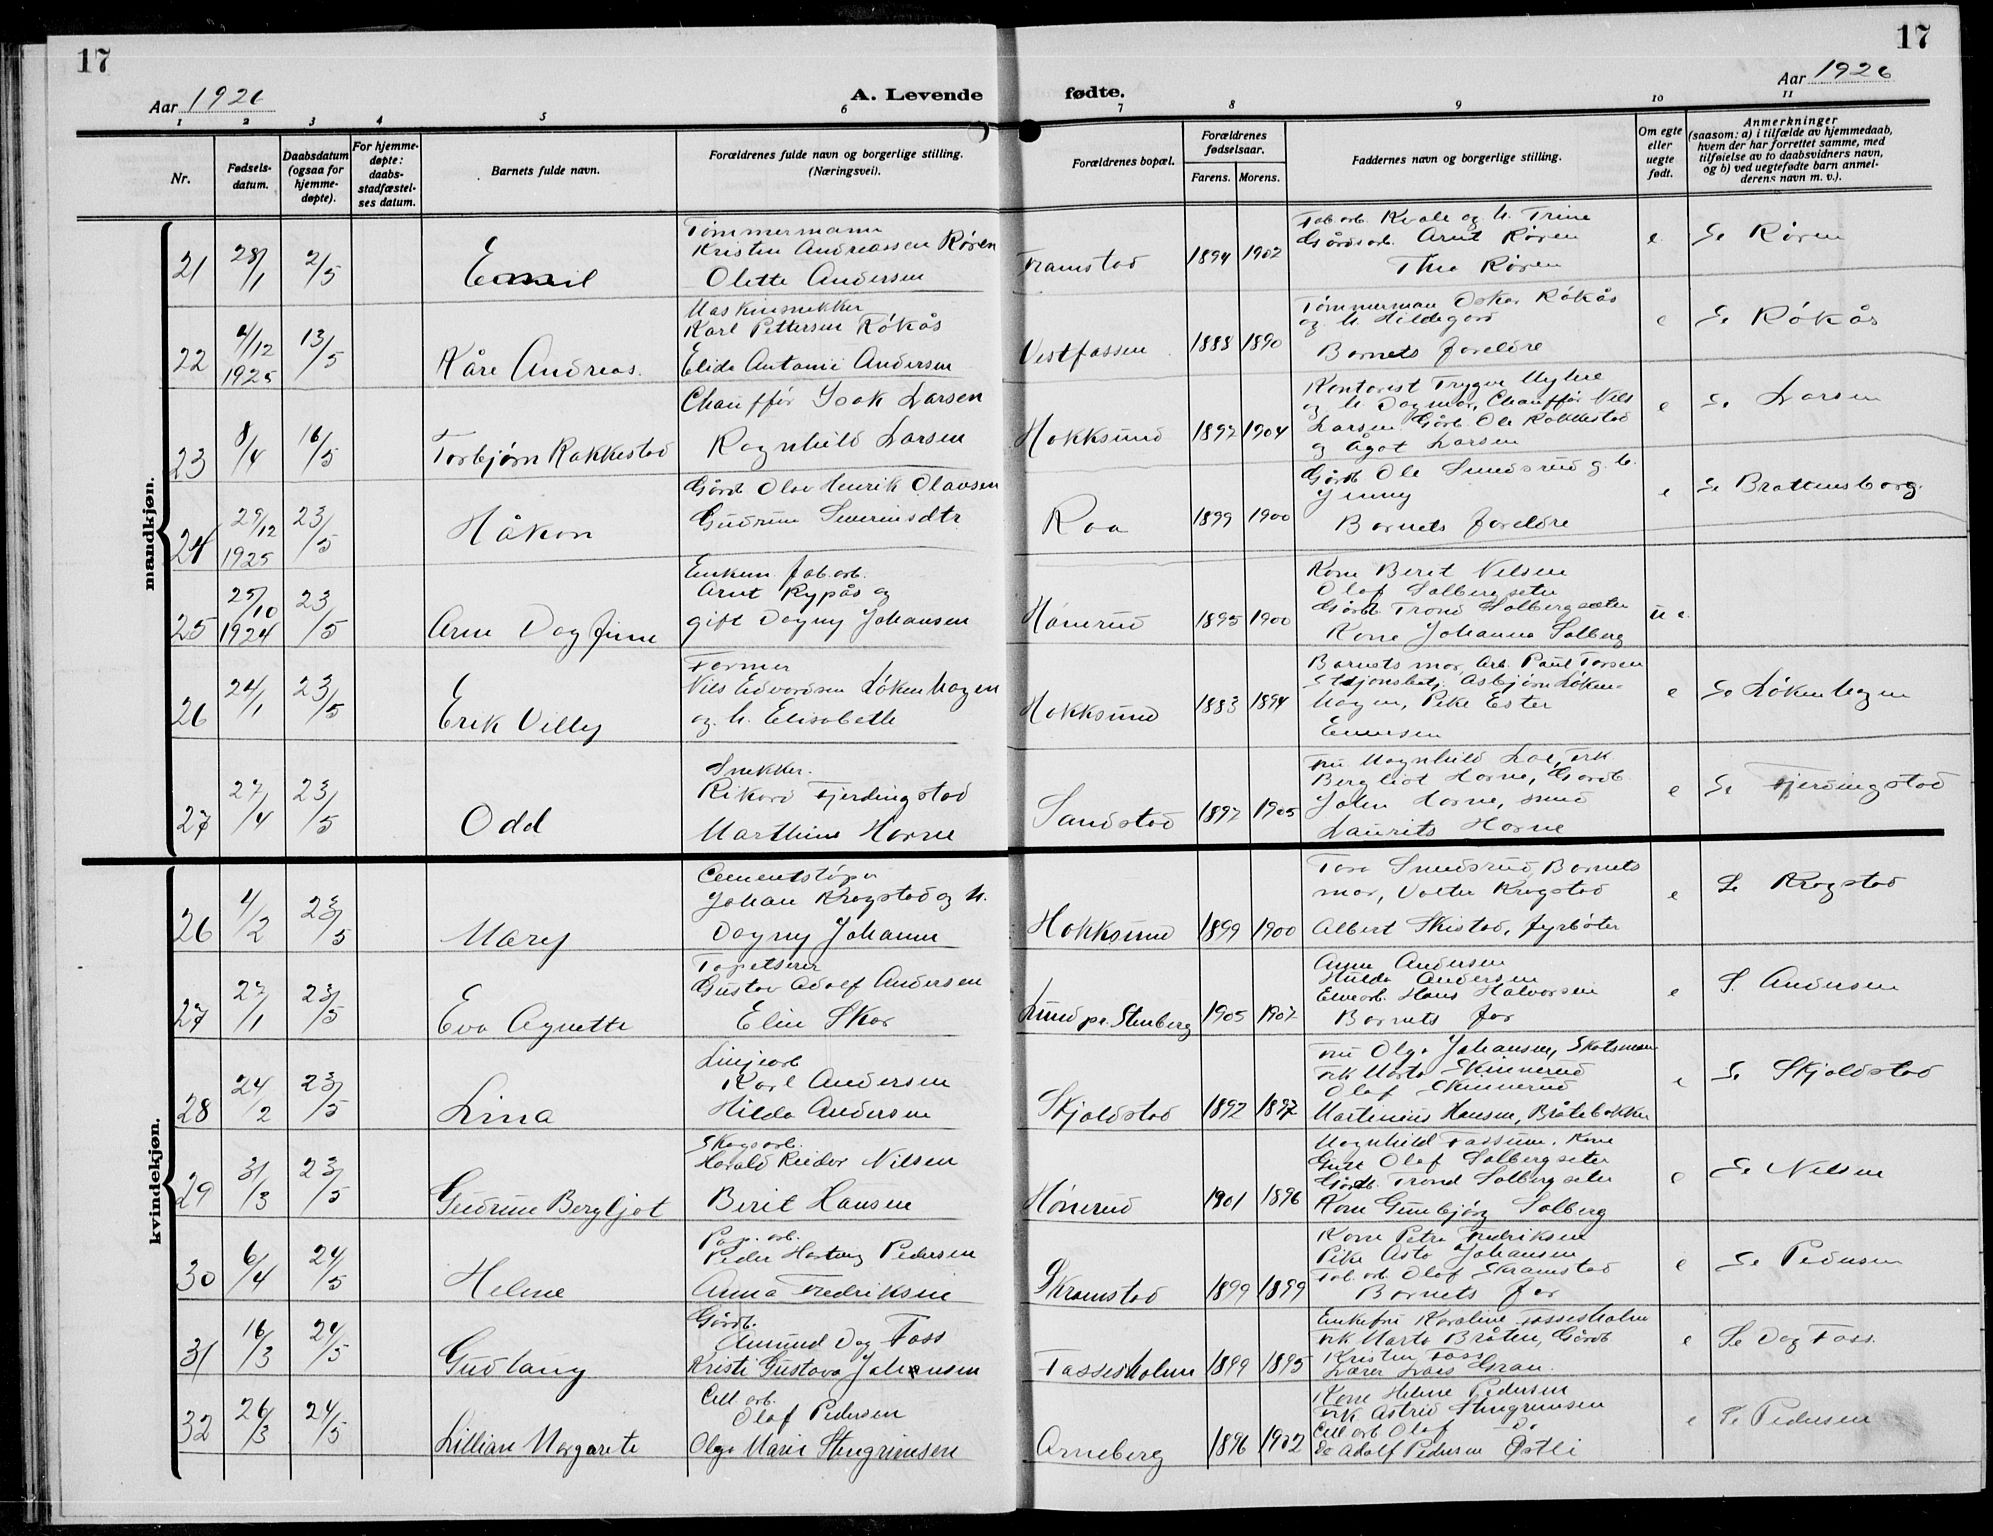 17
17
Aar 1926
A. Levende
fødte.
Aar 1926
1 2 3 4 5 6 7 8 9 10 11
Nr.
Fødsels-
datum.
Daabsdatum
(ogsaa for
hjemme-
døpte).
For hjemme-
døpte:
daabs-
stadfæstel-
ses datum.
Barnets fulde navn.
Forældrenes fulde navn og borgerlige stilling.
(Næringsvei).
Forældrenes bopæl.
Forældrenes
fødselsaar.
Farens. Morens.
Faddernes navn og borgerlige stilling.
Om egte
eller
uegte
født.
Anmerkninger
(saasom: a) i tilfælde av hjemmedaab,
hvem der har forrettet samme, med
tilføielse av to daabsvidners navn,
og b) ved uegtefødte barn anmel-
derens navn m. v.).
mandkjøn.
21 28/1 2/5 Emil
Tømmermann
Kristen Andreassen Røren
Olette Andersen
Framstad 1894 1902
Fab arb. Kvale og h. Trine
Gårdsarb. Arnt Røren
Thea Røren
e. Se Røren
22 4/12 1925 13/5 Kåre Andreas.
Maskinsnekker
Karl Pettersen Røkås
Elida Antonie Andersen
Vestfossen 1888 1890
Tømmerman Oskar Røkås
og h. Hildegard
Barnets foreldre
e Se Røkås
23 8/4 16/5 Torbjørn Rakkestad
Chauffør Isak Larsen
Ragnhild Larsen
Hokksund 1897 1904
Kontorist Trygve Myhre
og h. Dagmar, Chauffør Nils
Larsen Gårb. Ole Rakkestad
og Ågot Larsen
e Se Larsen
24 29/12 1925 23/5 Håkon
Gårdb Olav Henrik Olavsen
Gudrun Severinsdtr
Roa 1899 1900
Gårdb Ole Smedsrud g. h.
Jenny
Barnets foreldre
e Se Brattensborg.
25 25/10 1924 23/5 Arne Dagfinn
Enkem. fab.arb.
Arnt Rypås og
gift Dagny Johansen
Hønerud 1895 1900
Kone Berit Nilsen
Olaf Solbergseter
Gårdb Trond Solbergseter
Kone Johanna Solberg
u e.
26 24/1 23/5 Erik Villy
Former
Nils Edvardsen Løkenhagen
og h. Elisabeth
Hokksund 1883 1894
Barnets mor, Arb. Paul Torsen
Stasjonsbetj. Asbjørn Løken-
hagen, Pike Ester
Evensen
e Se Løkenhagen
27 27/4 23/5 Odd
Snekker.
Rikard Fjerdingstad
Marthine Horne
Sandstad 1897 1905
Fru Magnhild Loe, Frk
Bergliot Horne, Gårdb
John Horne, smed
Laurits Horne
e Se Fjerdingstad
kvindekjøn.
26 4/2 23/5 Mary
Cementstøper
Johan Krogstad og h.
Dagny Johanne
Hokksund 1899 1900
Tora Smedsrud, Barnets
mor, Valter Krogstad
Albert Skistad, fyrbøter
e Se Krogstad
27 27/1 23/5 Eva Agnette
Tapetserer
Gustav Adolf Andersen
Elin Skar
Lund pr. Stenberg 1905 1907
Anna Andersen
Hulda Andersen
Elvearb. Hans Halvorsen
Barnets far
e S. Andersen
28 24/2 23/5 Lina
Linjearb
Karl Andersen
Hilda Andersen
Skjoldstad 1892 1897
Fru Olga Johansen, Skotsmoen
Frk Marta Skinnerud
Olaf Skinnerud
Martinius Hansen, Bråtebakken
e Se Skjoldstad
29 31/3 23/5 Gudrun Bergljot
Skogsarb.
Harald Reidar Nilsen
Berit Hansen
Hønerud 1901 1896
Magnhild Fossum, Kone
Guri Olaf Solbergseter
Gårdb. Trond Solbergseter
Kone Gunbjørg Solberg
e Se Nilsen
30 6/4 24/5 Helene
Pap. arb.
Peder Hartvig Pedersen
Anna Fredriksen
Skramstad 1899 1899
Kone Petra Fredriksen
Pike Asta Johansen
Fab. arb. Olaf Skramstad
Barnets far
e Se Pedersen
31 16/3 24/5 Gudlaug
Gårdb.
Amund Dag Foss
Kristi Gustava Johansen
Fossesholm 1899 1895
Enkefru Karoline Fossesholm
Frk Marta Bråten, Gårdb
Kristen Foss
Lærer Lars Gran.
e Se Dag Foss.
32 26/3 24/5 Lillian Margarete
Cell arb.
Olaf Pedersen
Olga Marie Stengrimsen
Arneberg 1896 1902
Kone Helene Pedersen
Frk Astrid Stengrimsen
Cell arb Olaf do
do Adolf Pedersen Østli
e Se Pedersen